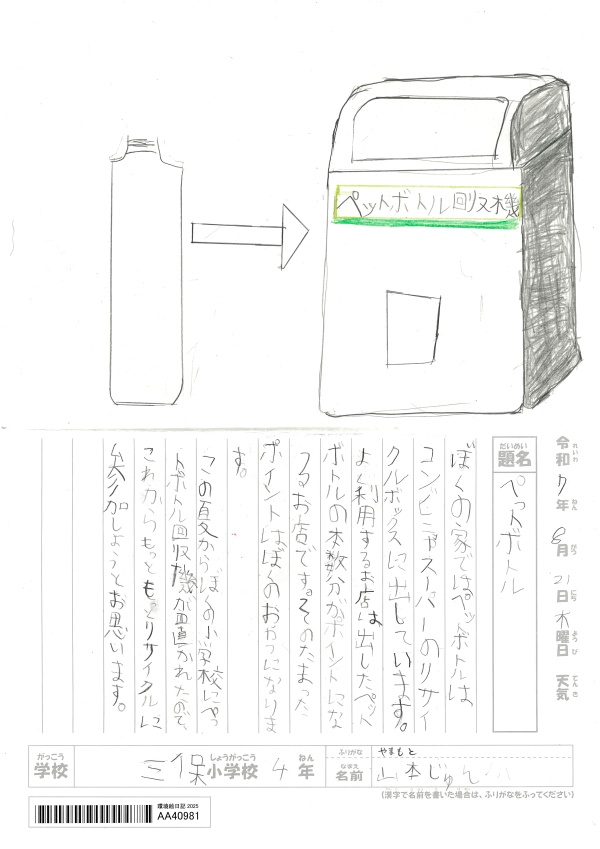 ペットボトル回収機
令和7年8月21日木曜日 天気
れいわ ねん がつ にち ようび てんき
だいめい
題名 ペットボトル
ぼくの家ではペットボトルは
コンビニやスーパーのリサイ
クルボックスに出しています。
よく利用するお店は出したペット
ボトルの本数分がポイントにな
るお店です。そのたまった
ポイントはぼくのおやつになりま
す。
この夏からぼくの小学校にペッ
トボトル回収機が置かれたので
これからもっともっとリサイクルに
参加しようとお思います。
がっこう しょうがっこう ねん
学校 三保小学校 4年
ふりがな やまもと
なまえ
名前 山本じゅん
(漢字で名前を書いた場合は、ふりがなをふってください)
環境絵日記 2025
AA40981